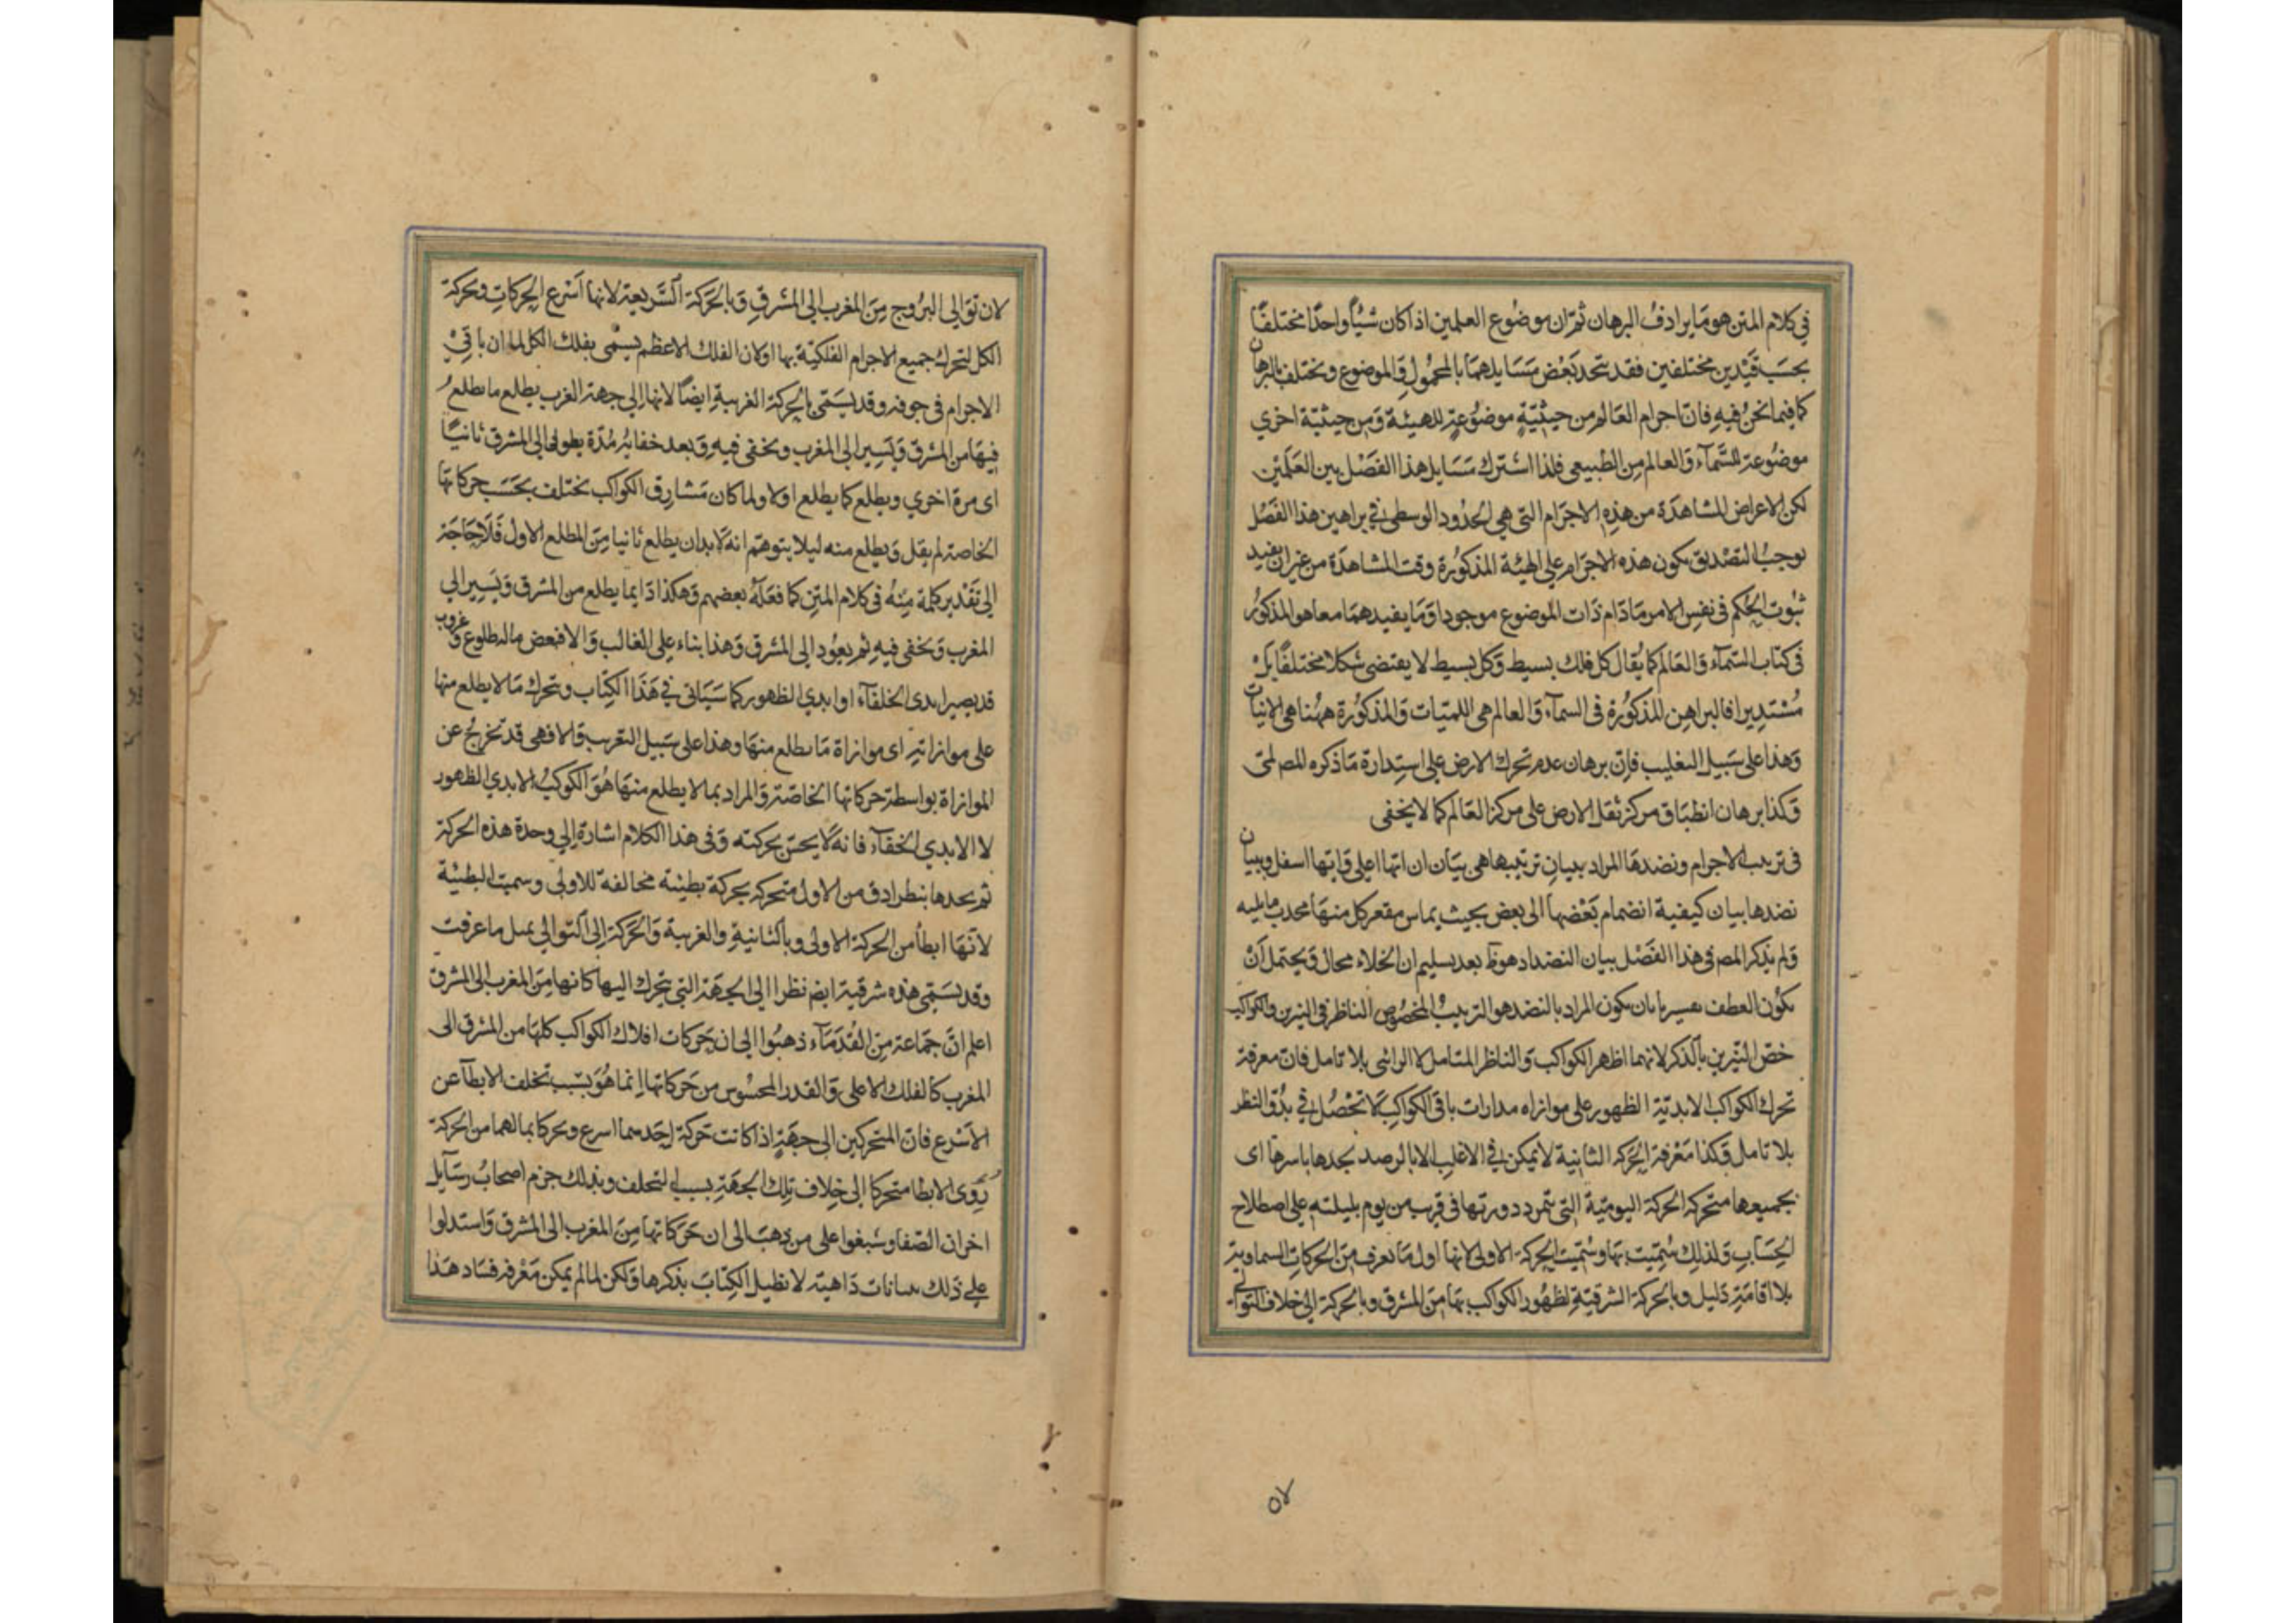 في كلام المتن هو ما يرادف البرهان ثم ان موضوع العلمين اذا كان شيأ واحدا مختلفا
بحسب قيدين مختلفين فقد تتحد بعض مسايلهما بالمحمول والموضوع وتختلف بالبرهان
كما فيما نحن فيه فان اجرام العالم من حيثية موضوعة للهيئة ومن حيثية اخري
موضوعة للسماء والعالم من الطبيعي فلذا اشترك مسايل هذا الفصل بين العلمين
لكن الاعراض المشاهدة من هذه الاجرام التي هي الحدود الوسطى في براهين هذا الفصل
يوجب التصديق بكون هذه الاجرام علي الهيئة المذكورة وقت المشاهدة من غير ان يفيد
ثبوت الحكم في نفس الامر ما دام ذات الموضوع موجودا وما يفيدهما معا هو المذكور
في كتاب السماء والعالم كما يقال كل فلك بسيط وكل بسيط لا يقتضى شكلا مختلفا
مستديرا فالبراهين المذكورة في السماء والعالم هي اللميات والمذكورة ههنا هي الانيات
وهذا على سبيل التغليب فان برهان عدم تحرك الارض علي استدارة ما ذكره المص لمى
وكذا برهان انطباق مركز ثقل الارض على مركز العالم كما لا يخفى
فى ترتيب الاجرام ونضدها المراد ببيان ترتيبها هي بيان ان ايها اعلى وايها اسفل وببيان
نضدها بيان كيفية انضمام بعضها الى بعض بحيث يماس مقعر كل منها محدب ما يليه
ولم يذكر المص في هذا الفصل بيان النضد اذ هو ظ بعد تسليم ان الخلاء محال ويحتمل ان
يكون العطف تفسيريا بان يكون المراد بالنضد هو الترتيب المخصوص الناظر في النيرين والكواكب
خص النيرين بالذكر لانهما اظهر الكواكب والناظر المتامل لا الرائى بلا تامل فان معرفة
تحرك الكواكب الابدية الظهور على موازاة مدارات باقى الكواكب لا تحصل في بدو النظر
بلا تامل وكذا معرفة الحركة الثانية لا يمكن في الاغلب الا بالرصد يجدها باسرها اى
بجميعها متحركة الحركة اليومية التي تتم دورتها في قريب من يوم بليلته على اصطلاح
الحساب ولذلك سميت بها وسميت الحركة الاولى لانها اول ما تعرف من الحركات السماوية
بلا اقامة دليل وبالحركة الشرقية لظهور الكواكب بها من المشرق وبالحركة الى خلاف التوالى
٥٧
لان توالي البروج من المغرب الى المشرق وبالحركة السريعة لانها اسرع الحركات وبحركة
الكل لتحرك جميع الاجرام الفلكية بها اولان الفلك الاعظم يسمى بفلك الكل لما ان باقي
الاجرام فى جوفه وقد يسمى بالحركة الغربية ايضا لانها الي جهة الغرب يطلع ما يطلع
فيها من المشرق ويسير الى المغرب ويخفى فيه وبعد خفائه مدة يطول الى المشرق ثانيا
اى مرة اخري ويطلع كما يطلع اولا ولما كان مشارق الكواكب تختلف بحسب حركاتها
الخاصة لم يقل ويطلع منه ليلا يتوهم انه لابد ان يطلع ثانيا من المطلع الاول فلا حاجة
الى تقدير كلمة منه في كلام المتن كما فعله بعضهم وهكذا دايما يطلع من المشرق ويسير الي
المغرب ويخفى فيه ثم يعود الى المشرق وهذا بناء على الغالب والا فبعض ماله طلوع وغروب
قد يصير ابدي الخفاء او ابدي الظهور كما سياتي في هذا الكتاب وتحرك ما لا يطلع منها
على موازاته اى موازاة ما يطلع منها وهذا على سبيل التقريب والا فهي قد تخرج عن
الموازاة بواسطة حركاتها الخاصة والمراد بما لا يطلع منها هو الكوكب الابدي الظهور
لا الابدي الخفاء فانه لا يحس بحركته وفى هذا الكلام اشارة الي وحدة هذه الحركة
ثم يجدها بنظر ادق من الاول متحركة بحركة بطيئة مخالفة للاولى وسميت البطيئة
لانها ابطأ من الحركة الاولى وبالثانية والغربية والحركة الى التوالي بمثل ما عرفت
وقد يسمى هذه شرقية ايضا نظرا الى الجهة التي يتحرك اليها كانها من المغرب الى المشرق
اعلم ان جماعة من القدماء ذهبوا الى ان حركات افلاك الكواكب كلها من المشرق الى
المغرب كالفلك الاعلى والقدر المحسوس من حركاتها انما هو بسبب تخلف الابطأ عن
الاسرع فان المتحركين الى جهة اذا كانت حركة احدهما اسرع وتحركا بمالهما من الحركة
رؤي الابطا متحركا الى خلاف تلك الجهة بسبب التخلف وبذلك جزم اصحاب رسآيل
اخوان الصفا وشنعوا على من ذهب الى ان حركاتها من المغرب الى المشرق واستدلوا
علي ذلك ببيانات ذاهبة لا نطيل الكتاب بذكرها ولكن لما لم يمكن معرفة فساد هذا